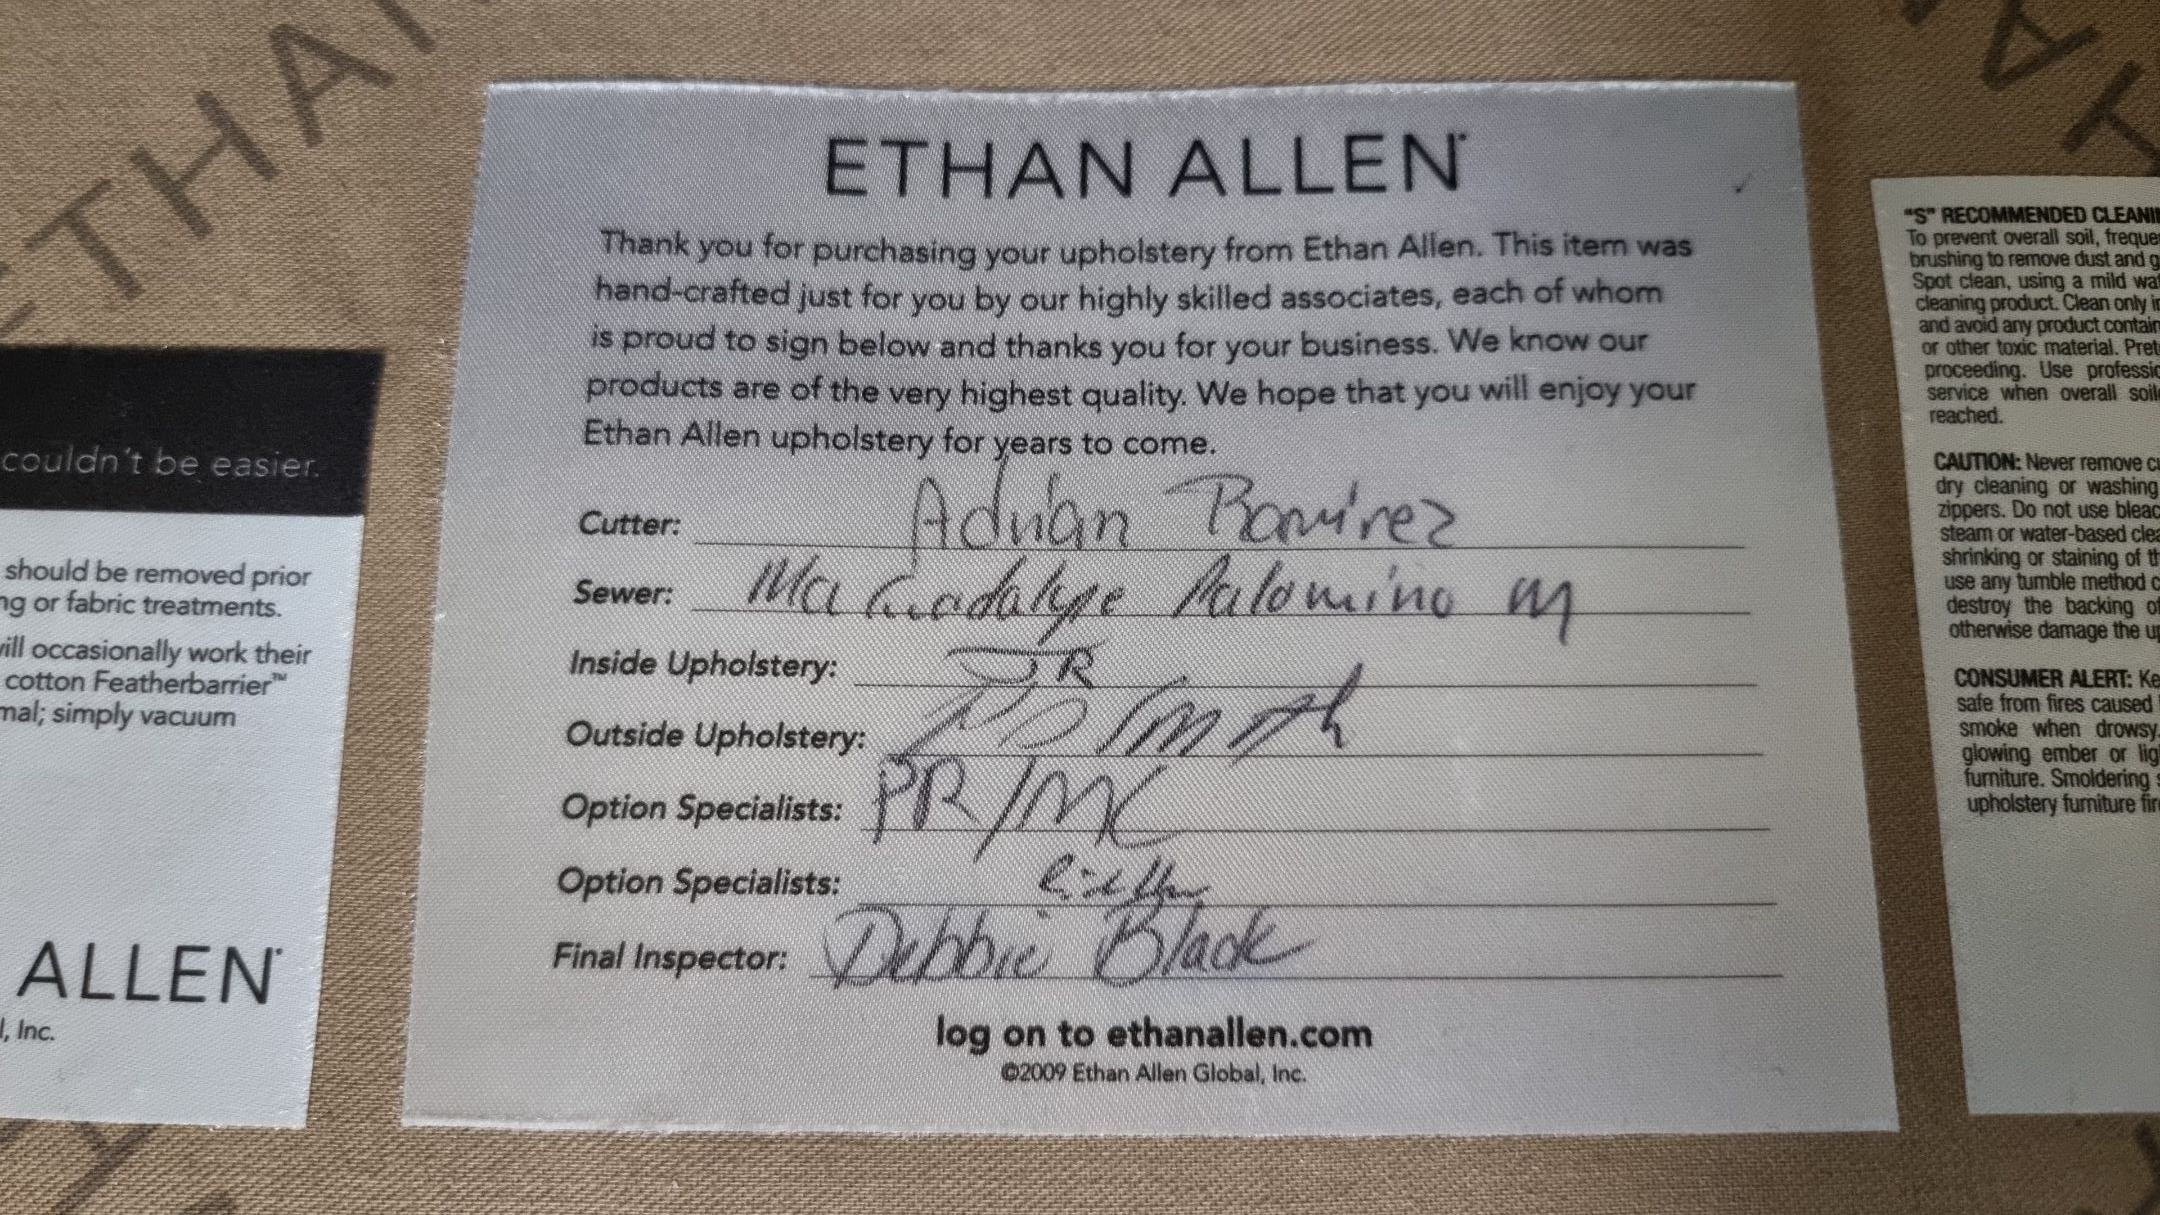 ETHAN
couldn't be easier.
should be removed prior
ng or fabric treatments.
will occasionally work their
cotton Featherbarrier™
mal; simply vacuum
ALLEN
l, Inc.
ETHAN ALLEN
Thank you for purchasing your upholstery from Ethan Allen. This item was
hand-crafted just for you by our highly skilled associates, each of whom
is proud to sign below and thanks you for your business. We know our
products are of the very highest quality. We hope that you will enjoy your
Ethan Allen upholstery for years to come.
Cutter: Adrian Ramirez
Sewer: Ma Guadalupe Palomino M
Inside Upholstery: JR
Outside Upholstery:
Option Specialists: PR/MC
Option Specialists:
Final Inspector: Debbie Black
log on to ethanallen.com
©2009 Ethan Allen Global, Inc.
"S" RECOMMENDED CLEANI
To prevent overall soil, freque
brushing to remove dust and g
Spot clean, using a mild wat
cleaning product. Clean only i
and avoid any product contain
or other toxic material. Pret
proceeding. Use professio
service when overall soil
reached.
CAUTION: Never remove c
dry cleaning or washing
zippers. Do not use bleac
steam or water-based clea
shrinking or staining of th
use any tumble method c
destroy the backing of
otherwise damage the up
CONSUMER ALERT: Ke
safe from fires caused
smoke when drowsy.
glowing ember or lig
furniture. Smoldering s
upholstery furniture fir